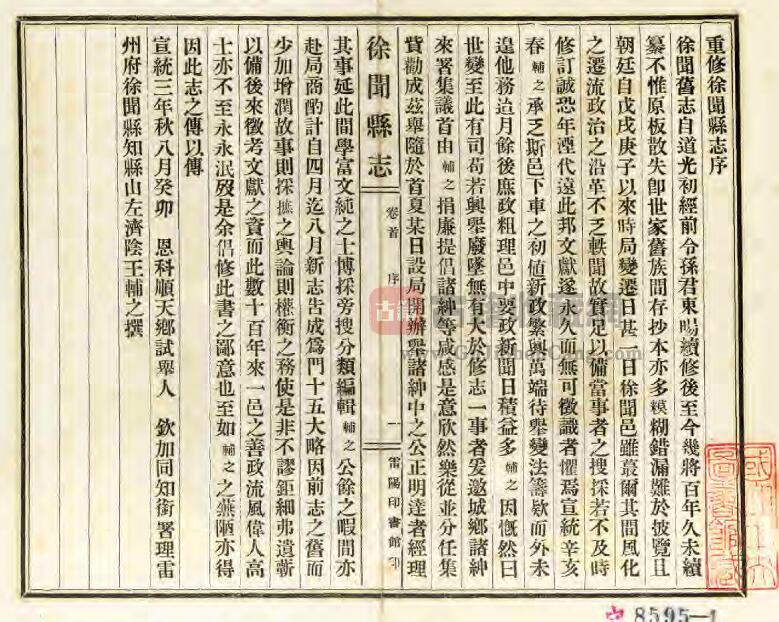 重修徐聞縣志序
徐聞舊志自道光初經前令孫君東暘續修後至今幾將百年久未續
纂不惟原板散失卽世家舊族間存抄本亦多糢糊錯漏難於披覽且
朝廷自戊戌庚子以來時局變遷日甚一日徐聞邑雖蕞爾其間風化
之遷流政治之沿革不乏軼聞故實足以備當事者之搜採若不及時
修訂誠恐年湮代遠此邦文獻遂永久而無可徵識者懼焉宣統辛亥
春輔之承乏斯邑下車之初値新政繁興萬端待舉變法籌欵而外未
遑他務迨月餘後庶政粗理邑中要政新聞日積益多輔之因慨然曰
世變至此有司苟若興舉廢墜無有大於修志一事者爰邀城鄉諸紳
來署集議首由輔之捐廉提倡諸紳等咸感是意欣然樂從並分任集
貲勸成茲舉隨於首夏某日設局開辦舉諸紳中之公正明達者經理
徐聞縣志
卷首 序
一
雷陽印書館印
其事延此間學富文純之士博採旁搜分類編輯輔之公餘之暇間亦
赴局商酌計自四月迄八月新志告成爲門十五大略因前志之舊而
少加增潤故事則採摭之輿論則權衡之務使是非不謬鉅細弗遺蘄
以備後來徵考文獻之資而此數十百年來一邑之善政流風偉人高
士亦不至永永泯歿是余倡修此書之鄙意也至如輔之之蕪陋亦得
因此志之傳以傳
宣統三年秋八月癸卯 恩科順天鄉試舉人 欽加同知銜署理雷
州府徐聞縣知縣山左濟陰王輔之撰
古籍
8595-1